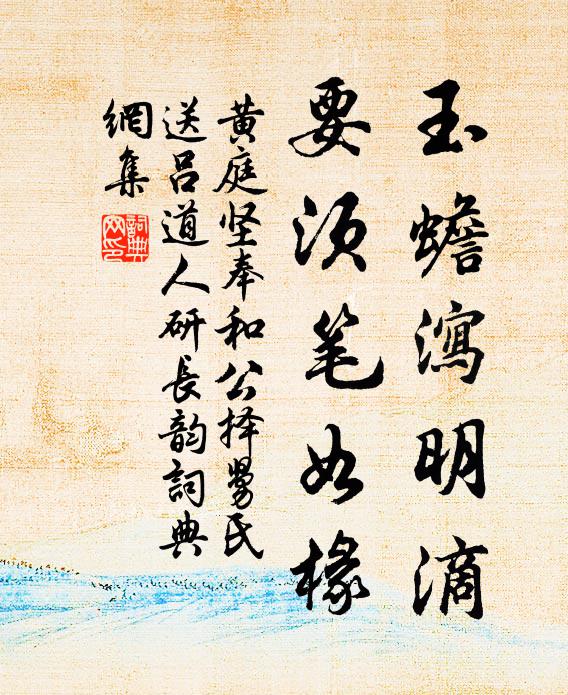 玉蟾瀉明滴
要须笔如椽
黄庭坚奉和公择舅氏
送吕道人研長韵詞典
網集
詞典網印